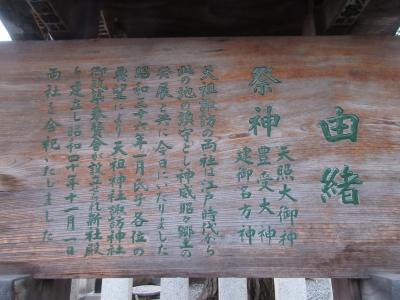 由緒
祭神
天照大御神
豊受大神
建御名方神
天祖諏訪の両社は江戸時代から
此の地の鎮守とし神威昭か郷土の
発展と共に今日にいたりました
昭和三十六年一月氏子各位の
要望により天祖神社諏訪神社
御造営奉賛会が設立され新社殿
を建立し昭和四十年十一月一日
両社を合祀いたしました